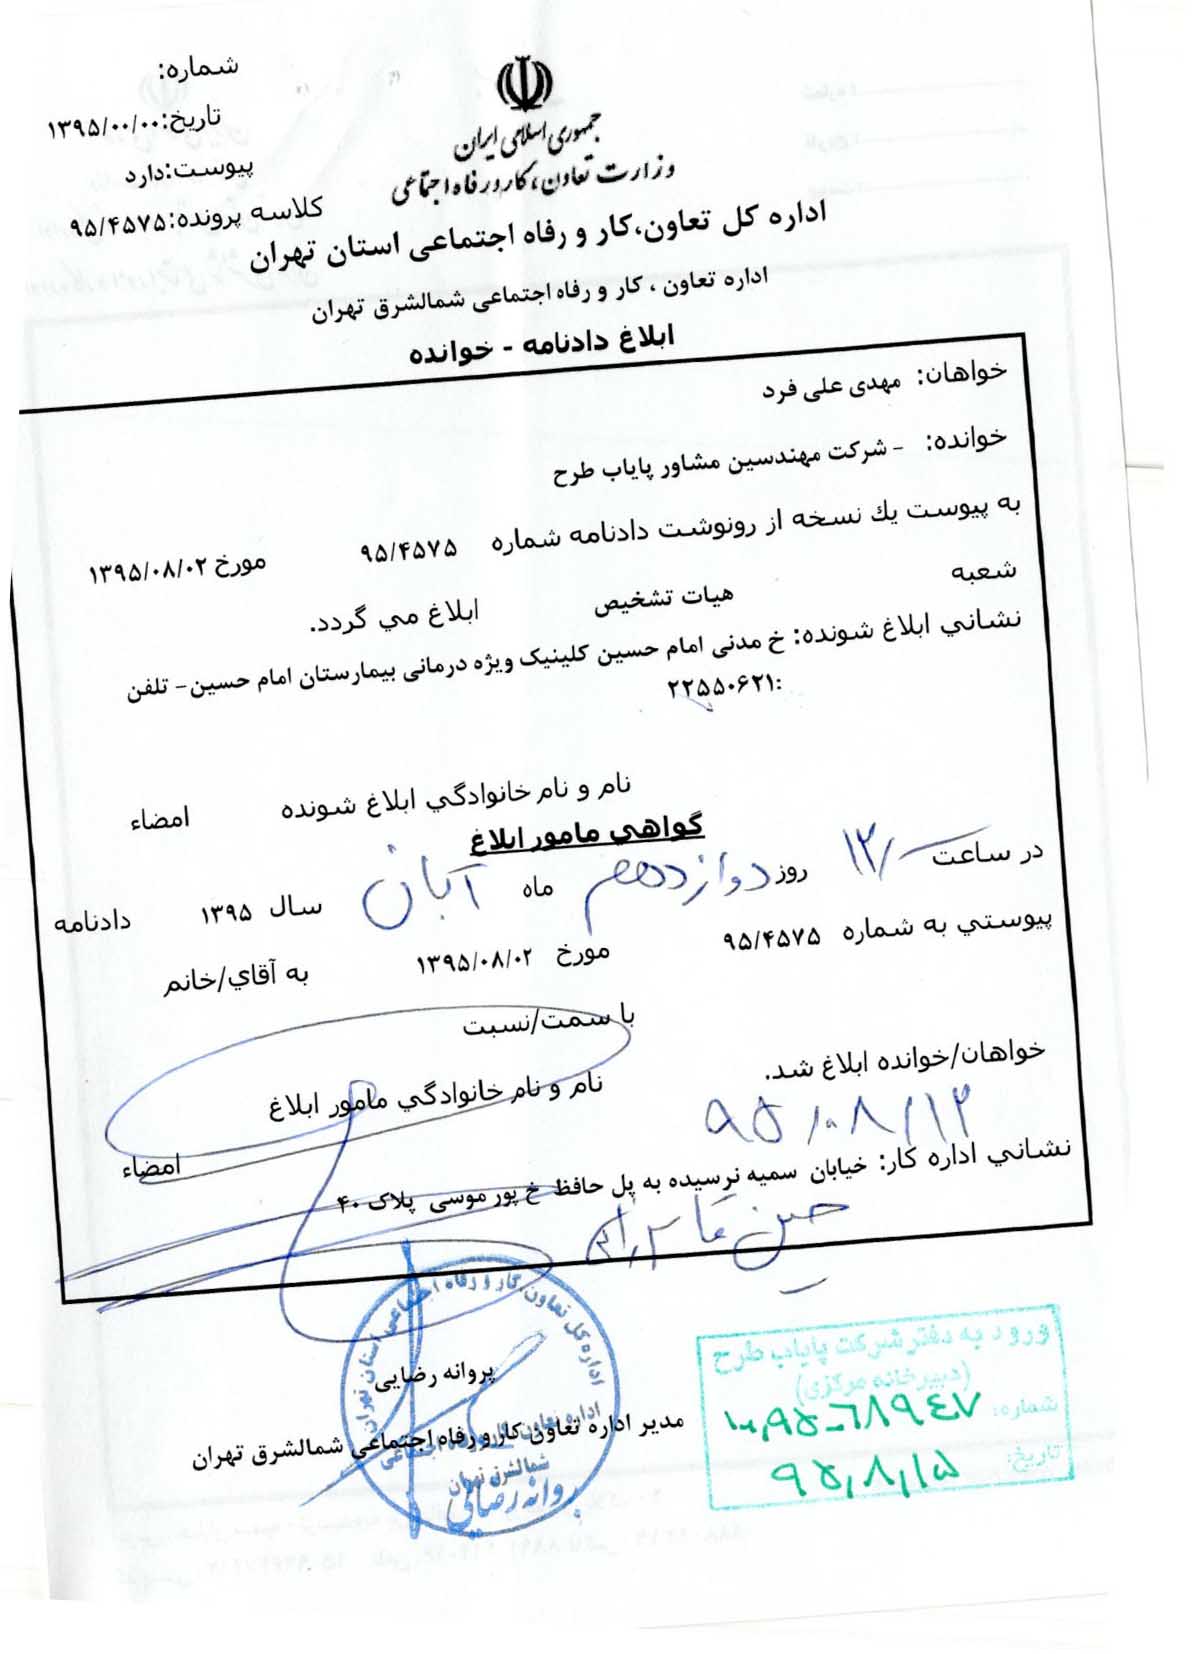 شماره:
تاریخ:۱۳۹۵/۰۰/۰۰
پیوست:دارد
کلاسه پرونده:۹۵/۴۵۷۵
جمهوری اسلامی ایران
وزارت تعاون، کار و رفاه اجتماعی
اداره کل تعاون،کار و رفاه اجتماعی استان تهران
اداره تعاون ، کار و رفاه اجتماعی شمالشرق تهران
ابلاغ دادنامه - خوانده
خواهان: مهدی علی فرد
خوانده: - شرکت مهندسین مشاور پایاب طرح
به پيوست يك نسخه از رونوشت دادنامه شماره ۹۵/۴۵۷۵ مورخ ۱۳۹۵/۰۸/۰۲
شعبه هیات تشخیص ابلاغ مي گردد.
نشاني ابلاغ شونده: خ مدنی امام حسین کلینیک ویژه درمانی بیمارستان امام حسین- تلفن
:۲۲۵۵۰۶۲۱
نام و نام خانوادگي ابلاغ شونده امضاء
گواهي مامور ابلاغ
در ساعت ۱۲/ روز دوازدهم ماه آبان سال ۱۳۹۵ دادنامه
پيوستي به شماره ۹۵/۴۵۷۵ مورخ ۱۳۹۵/۰۸/۰۲ به آقاي/خانم
با سمت/نسبت
خواهان/خوانده ابلاغ شد.
نام و نام خانوادگي مامور ابلاغ
۹۵/۰۸/۱۲
امضاء
نشاني اداره کار: خیابان سمیه نرسیده به پل حافظ خ پور موسی پلاک ۴۰
حسین
اداره کل تعاون، کار و رفاه اجتماعی استان تهران
پروانه رضایی
مدیر اداره تعاون کار و رفاه اجتماعی شمالشرق تهران
اداره تعاون، کار و رفاه اجتماعی
شمالشرق تهران
پروانه رضایی
ورود به دفتر شرکت پایاب طرح
(دبیرخانه مرکزی)
شماره: ۶۸۹۴۷
تاریخ: ۹۵,۸,۱۵